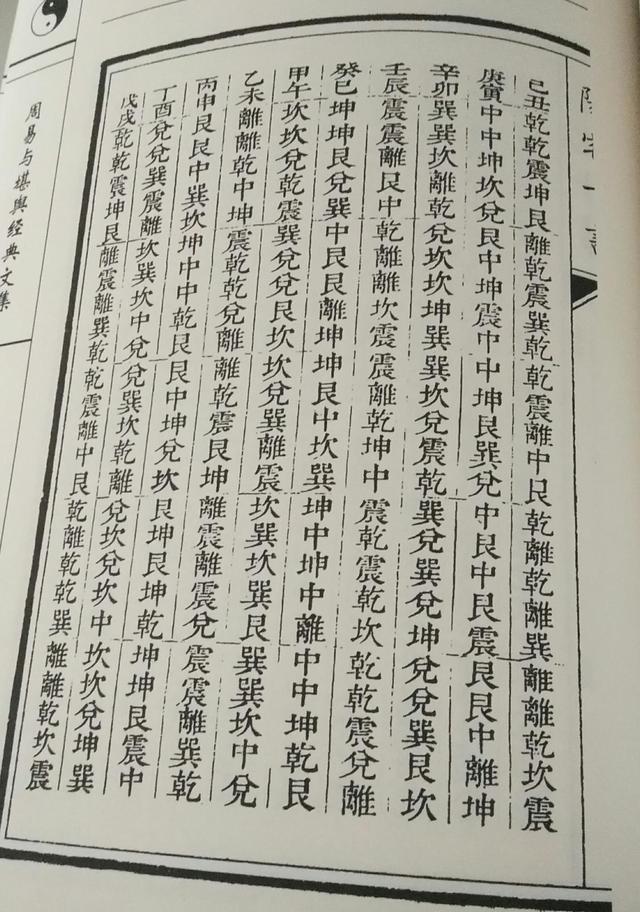 己丑乾乾震坤艮離乾震巽乾乾震離中艮乾離乾離巽離離乾坎震
庚寅中中坤坎兌艮中坤震中中坤艮巽兌中艮中艮震艮艮中離坤
辛卯巽巽坎離乾兌坎坎坤巽巽坎兌震乾巽兌巽兌坤兌兌巽艮坎
壬辰震震離艮中乾離離坎震震離乾坤中震乾震乾坎乾乾震兌離
癸巳坤坤艮兌巽中艮艮離坤坤艮中坎巽坤中坤中離中中坤乾艮
甲午坎坎兌乾震巽兌兌艮坎坎兌巽離震坎巽坎巽艮巽巽坎中兌
乙未離離乾中坤震乾乾兌離離乾震艮坤離震離震兌震震離巽乾
丙申艮艮中巽坎坤中中乾艮艮中坤兌坎艮坤艮坤乾坤坤艮震中
丁酉兌兌巽震離坎巽坎中兌兌巽坎乾離兌坎兌坎中坎坎兌坤巽
戊戌乾乾震坤艮離震離巽乾乾震離中艮乾離乾乾巽離離乾坎震
周易与堪輿經典文集